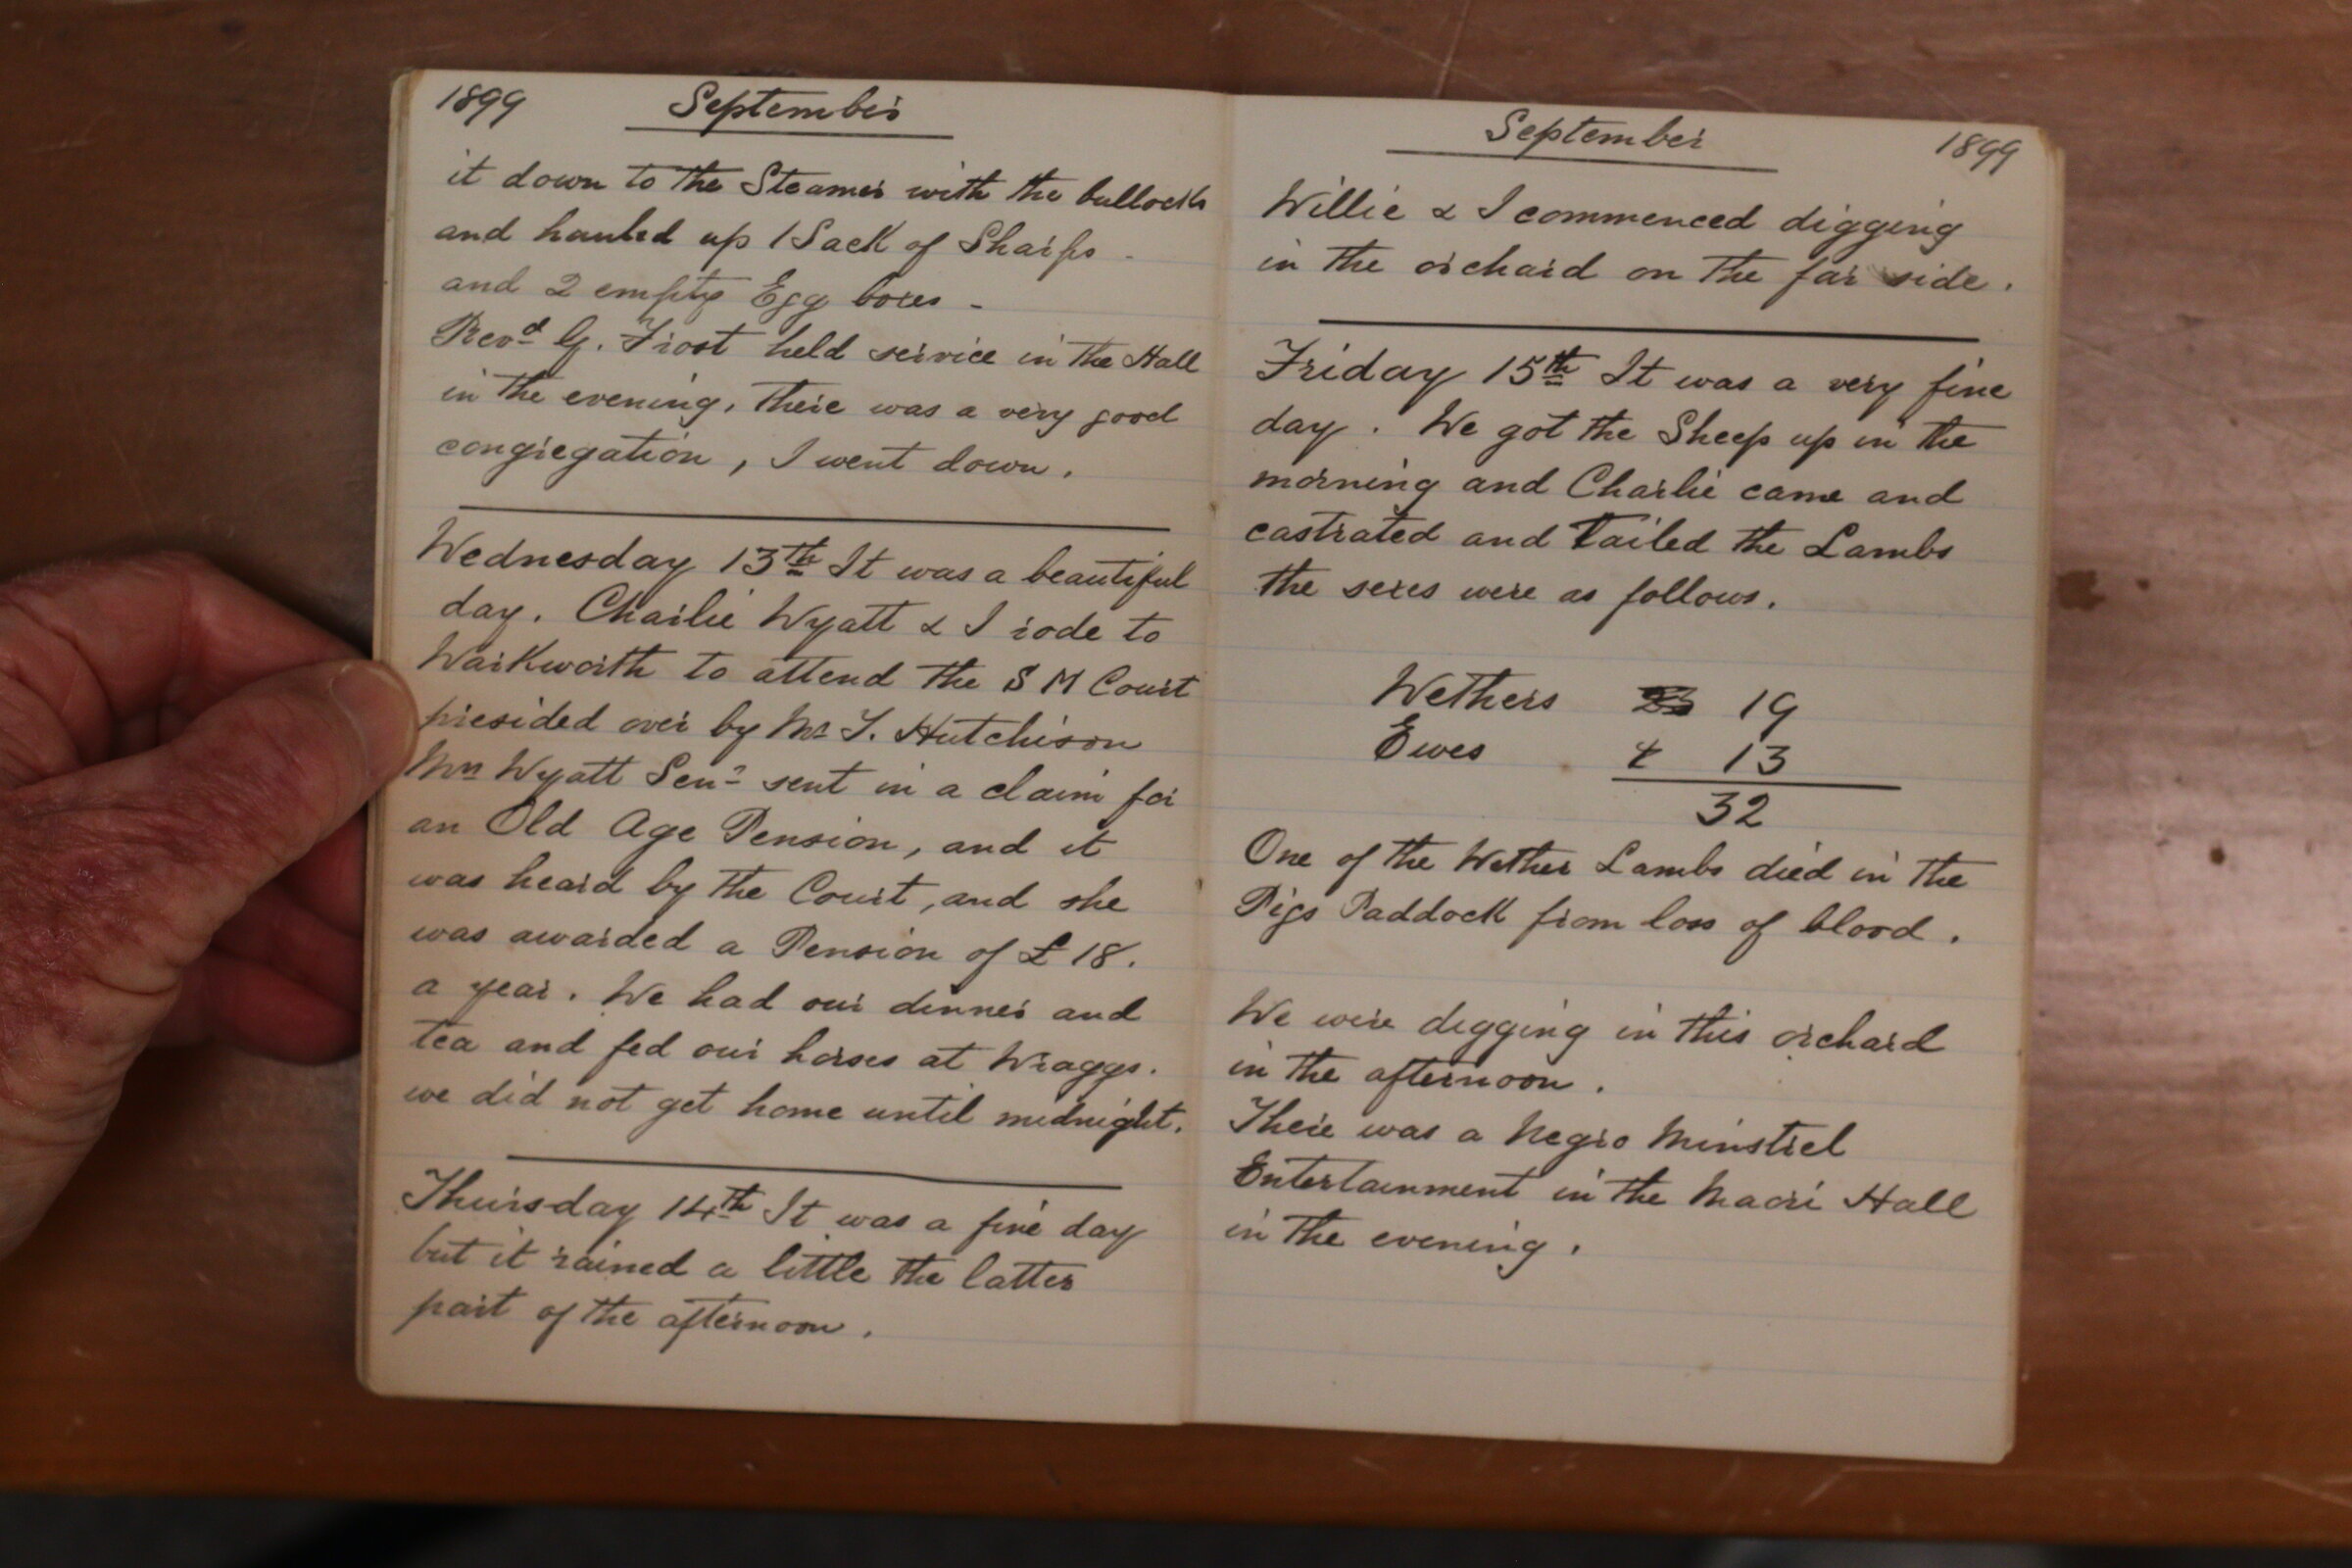 1899 September
it down to the Steamer with the bullocks
and hauled up 1 Sack of Sharps -
and 2 empty Egg boxes -
Revd G. Frost held service in the Hall
in the evening. There was a very good
congregation, I went down.
Wednesday 13th It was a beautiful
day. Charlie Wyatt & I rode to
Warkworth to attend the S M Court
presided over by Mr T. Hutchison
Mrs Wyatt Senr sent in a claim for
an Old Age Pension, and it
was heard by the Court, and she
was awarded a Pension of £18.
a year. We had our dinner and
tea and fed our horses at Wraggs.
we did not get home until midnight.
Thursday 14th It was a fine day
but it rained a little the latter
part of the afternoon.
September 1899
Willie & I commenced digging
in the orchard on the far side.
Friday 15th It was a very fine
day. We got the Sheep up in the
morning and Charlie came and
castrated and Tailed the Lambs
the sexes were as follows.
Wethers 19
Ewes & 13
32
One of the Wether Lambs died in the
Pigs Paddock from loss of blood.
We were digging in this orchard
in the afternoon.
There was a Negro Minstrel
Entertainment in the Maori Hall
in the evening.